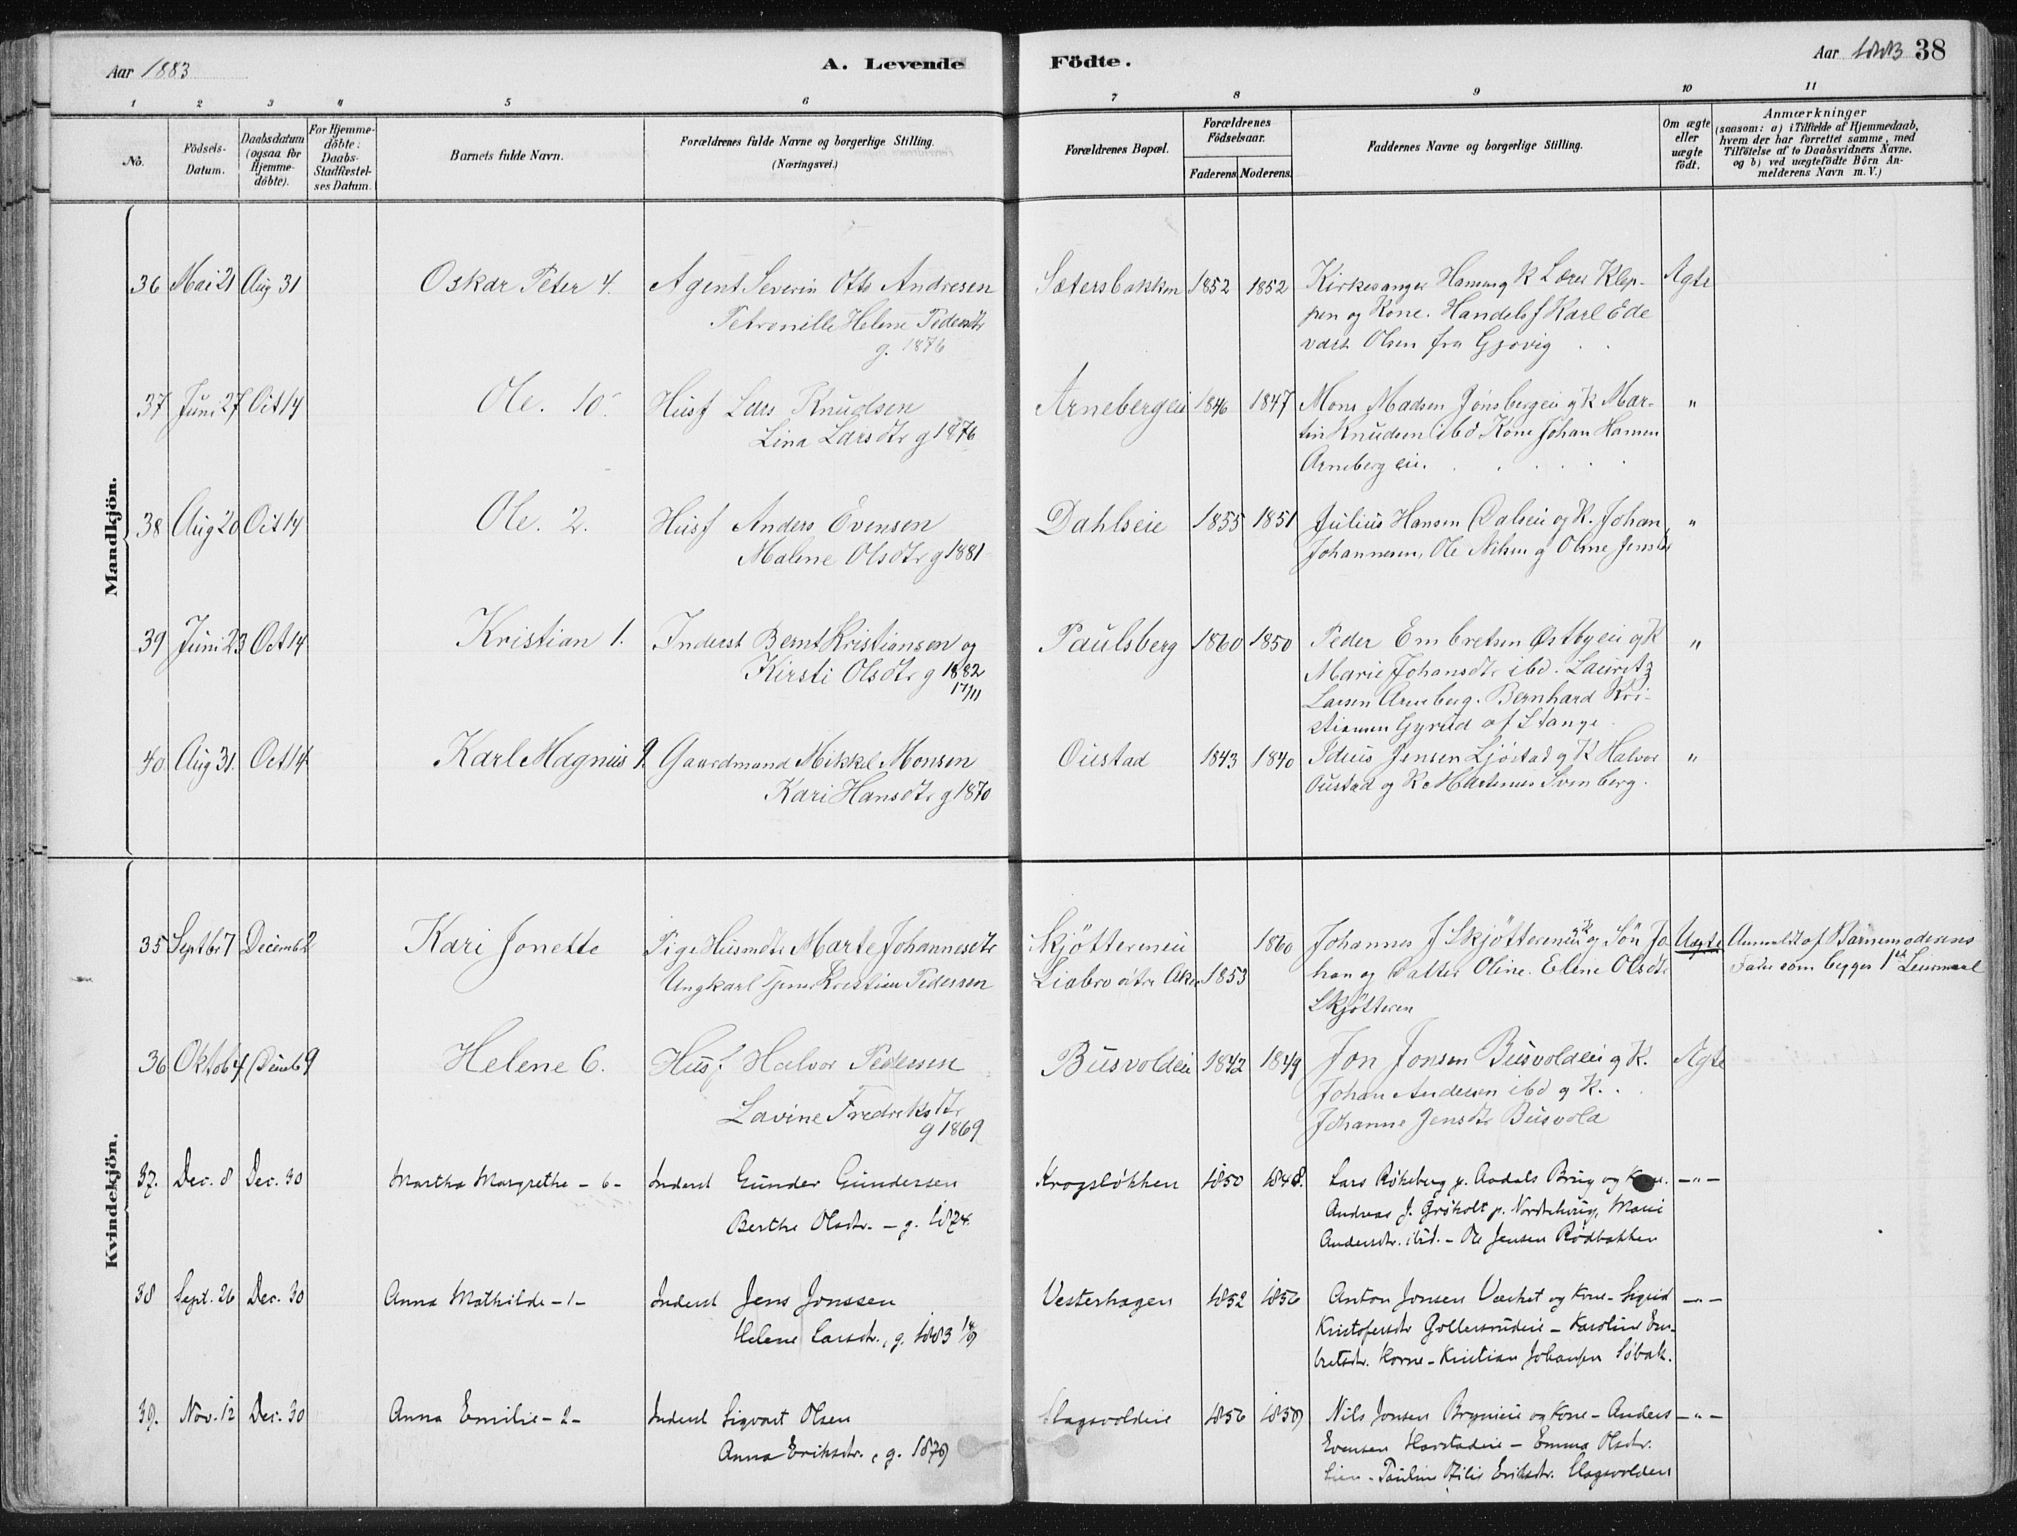 Aar 1883
A. Levende
Födte.
Aar 1883 38
1 2 3 4 5 6 7 8 9 10 11
No.
Födsels-
Datum.
Daabsdatum
(ogsaa for
Hjemme-
döbte).
For Hjemme-
döbte:
Daabs-
Stadfæstel-
ses Datum.
Barnets fulde Navn.
Forældrenes fulde Navne og borgerlige Stilling.
(Næringsvei.)
Forældrenes Bopæl.
Forældrenes
Födselsaar.
Faderens. Moderens.
Faddernes Navne og borgerlige Stilling.
Om ægte
eller
uægte
födt.
Anmærkninger
(saasom: a) i Tilfælde af Hjemmedaab,
hvem der har forrettet samme, med
Tilföielse af to Daabsvidners Navne.
og b) ved uægtefödte Börn An-
melderens Navn m. V.)
Mandkjön.
36 Mai 21 Aug 31 Oskar Peter 4. Agent Severin Otto Andresen Sætersbakken 1852 1852 Kirkesanger Hamang K Lærer Klep- Ægte
Petronille Helene Pedersdtr
g. 1876
pen og Kone. Handelsf Karl Ede
vart Olsen fra Gjøvig
37 Juni 27 Oct 14 Ole. 10. Husf Lars Knudsen Arnebergeie 1846 1847 Mons Madsen Jønsbergeie og K Mar- "
Lina Larsdtr g 1876
tin Knudsen ibd Kone Johan Hansen
Arneberg eie.
38 Aug 20 Oct 14 Ole. 2. Husf Anders Evensen Dahlseie 1855 1851 Julius Hansen Dalseie og K. Johan "
Malene Olsdtr g 1881
Johannesen, Ole Nilsen og Oline Jensdtr
39 Juni 23 Oct 14 Kristian 1. Inderst Bernt Kristiansen og Paulsberg 1860 1850 Peder Embretsen Østbyeie og K "
Kirsti Olsdtr g 1882
17/11
Marie Johansdtr ibd. Lauritz
Larsen Arneberg. Bernhard Kri-
stiansen Gyrud af Stange.
40 Aug 31. Oct 14 Karl Magnus 9. Gaardmand Mikkel Monsen Oustad 1843 1840 Jensen Ljøstad og K Halvor "
Kari Hansdtr g 1870
Oustad og K. Martinus Svenberg.
Kvindekjön.
35 Septbr 7 Decemb 2 Kari Jonette Pige Husmdtr Marte Johannesdtr Skjøttereneie 1860 Johannes J Skjøttereneie og K og Søn Jo- Uægte Anmeldt af Barnemoderens
Ungkarl Tjener Kristian Pedersen Liabro øvtre Aker 1853 han og Datter Oline. Elene Olsdtr Fader som begges 1ste Leiermaal
Skjøtteren
36 Oktob 4 Decemb 9 Helene 6. Husf Halvor Pedersen Busvoldeie 1842 1849 Jon Jonsen Busvoldeie og K. Ægte
Lavine Fredriksdtr
g 1869
Johan Andersen ibd og K.
Johanne Jensdtr Busvold
37. Dec. 8 Dec. 30 Martha Margrethe - 6 - Inderst Gunder Gundersen Krogsløkken 1850 1848. Lars Røkeberg p. Aadals Brug og Kone. - " -
Berthe Olsdtr. - g. 1874.
Andreas J. Grøholt p. Nordsthug, Marie
Andersdtr. ibid. - Ole Jensen Rødbakken
38 Sept. 26 Dec. 30 Anna Mathilde - 1 - Inderst Jens Jonssen Vesterhagen 1852 1856 Anton Jonsen Værket og Kone - Sigrid - " -
Helene Larsdtr., g. 1883 14/9
Kristofersdtr Gollersrudeie - Karoline Em-
bretsdtr. Horne - Kristian Johansen Søbak.
39. Nov. 12 Dec. 30 Anna Emilie - 2 - Inderst Sigvart Olsen Slagsvoldeie 1856 1859 Nils Jonsen Brynieie og Kone - Anders - " -
Anna Eriksdtr., g. 1879
Evensen Harstadeie - Emma Olsdtr.
Lien - Pauline Eriksdtr. Slagsvolden